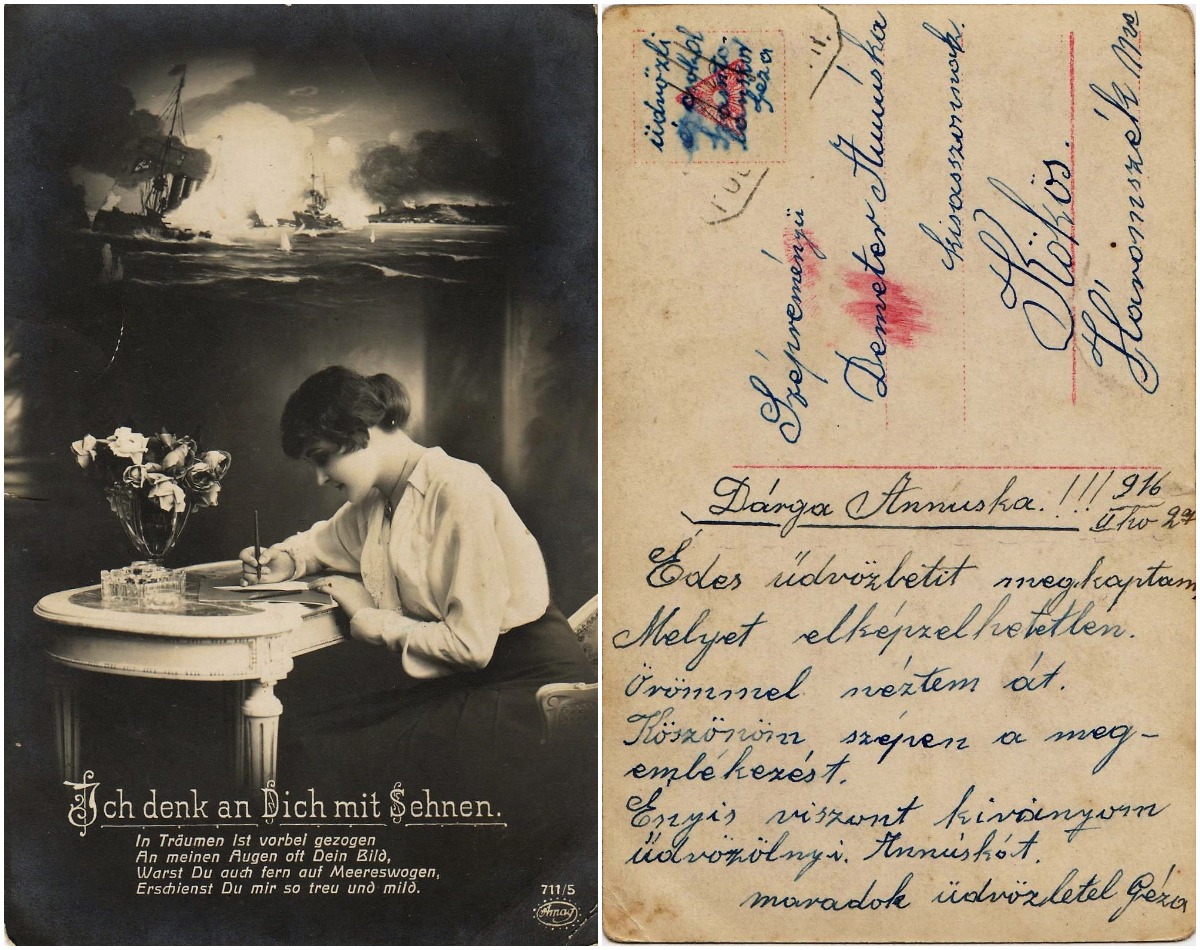 Ich denk an Dich mit Sehnen.
In Träumen ist vorbei gezogen
An meinen Augen oft Dein Bild,
Warst Du auch fern auf Meereswogen,
Erschienst Du mir so treu und mild.
711/5
Amag
üdvözli
Géza
Szépreményü
Demeter Annuska
kisasszonnak.
Kökös.
Háromszék
Dárga Annuska.!!! 916
II ho 2
Édes üdvözletit megkaptam
Melyet elképzelhetetlen.
Örömmel néztem át.
Köszönöm szépen a meg-
emlékezést.
Ényis viszont kiványom
üdvözölnyi. Annuskát.
maradok üdvözletel Géza